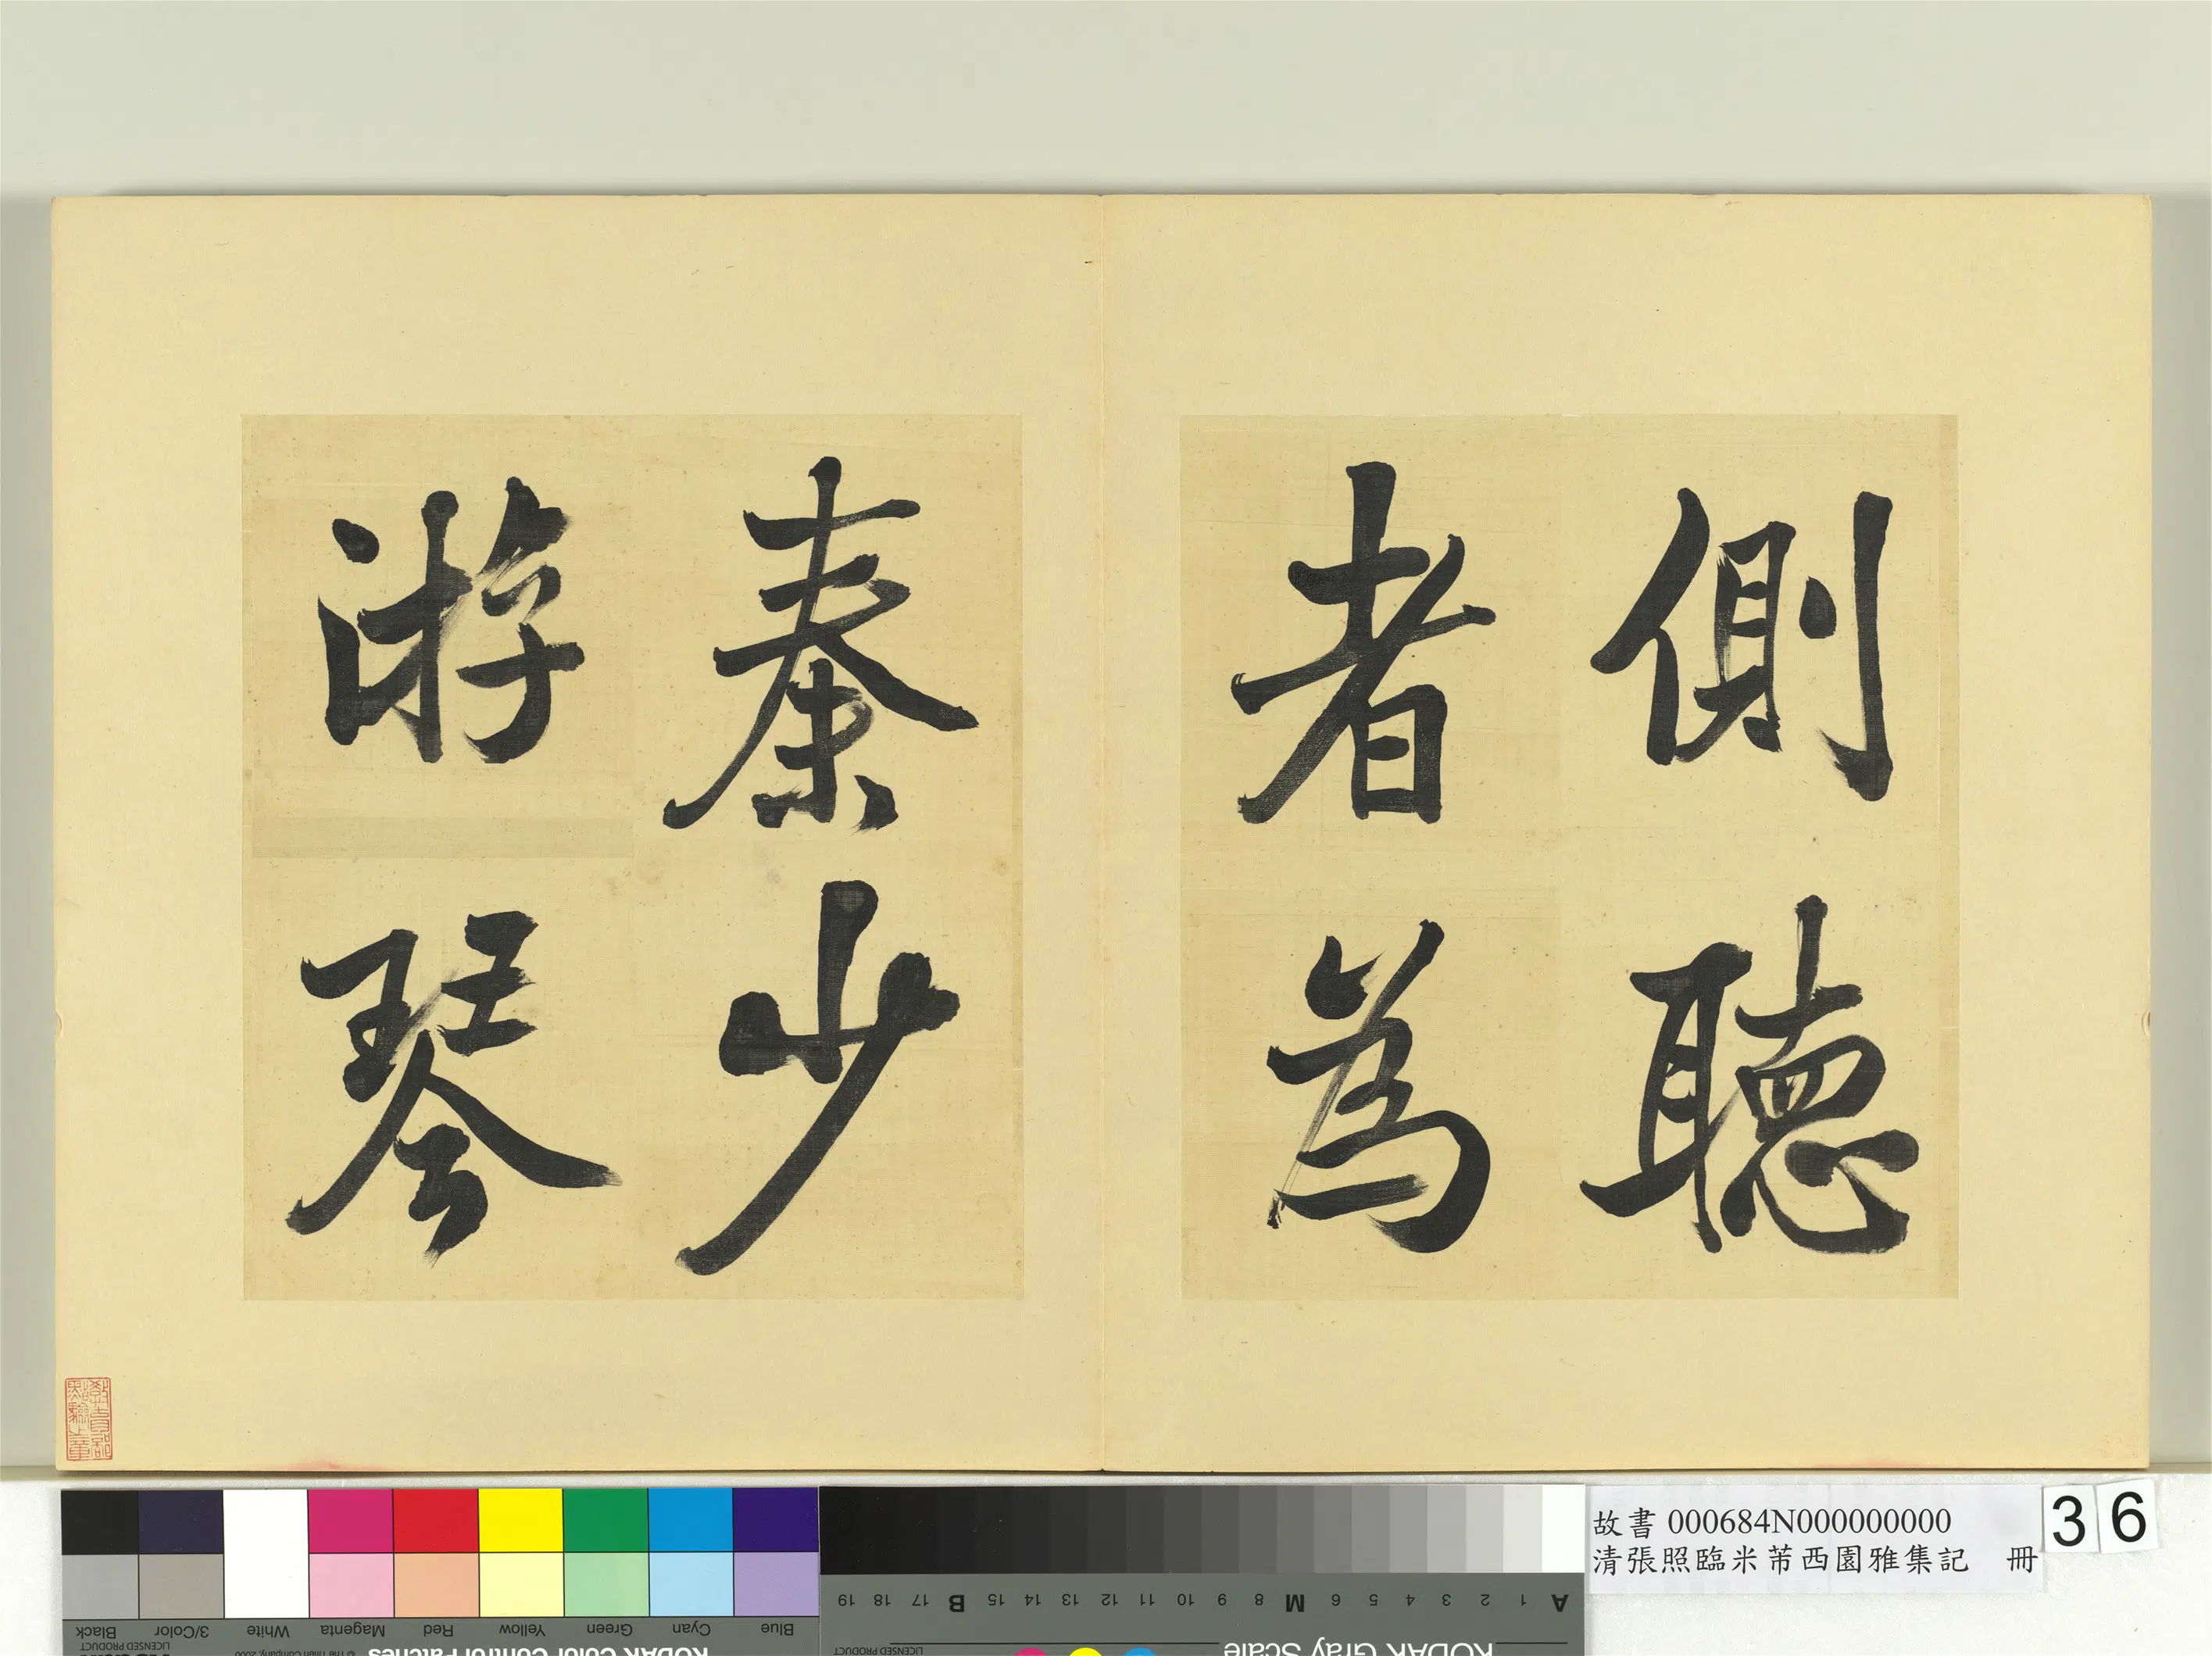 側聽
者為
秦少
游琴
教育部
點驗之章
故書 000684N000000000
清張照臨米芾西園雅集記 冊
36
Black
3/Color
White
Magenta
Red
Yellow
Green
Cyan
Blue
LICENSED PRODUCT
© The Tiffen Company, 2000
KODAK Color Control Patches
A 1 2 3 4 5 6 M 8 9 10 11 12 13 14 15 B 17 18 19
KODAK Gray Scale
LICENSED PRODUCT